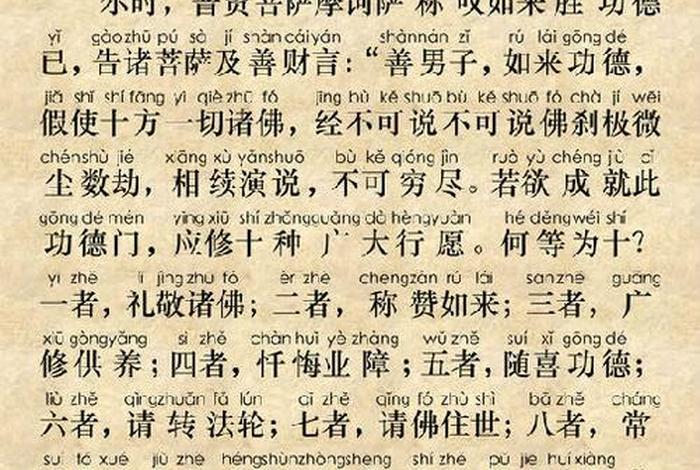 尔时，普贤菩萨摩诃萨 称 叹如来 胜 功德
yǐ gàozhū pú sà jí shàncáiyán shànnán zǐ rú lái gōng dé
已，告诸菩萨及善财言：“善男子，如来功德，
jiǎ shǐ shí fāng yí qièzhū fó jīng bù kě shuō bù kě shuō fó chà jí wēi
假使十方一切诸佛，经不可说不可说佛刹极微
chénshù jié xiāng xù yǎnshuō bù kě qióng jìn ruò yù chéng jiù cǐ
尘数劫，相续演说，不可穷尽。若欲成就此
gōng dé mén yīng xiū shí zhǒngguǎng dà hèngyuàn hé děngwéi shí
功德门，应修十种 广 大行愿。何等为十？
yī zhě lǐ jìng zhū fó èr zhě chēngzàn rú lái sānzhě guǎng
一者，礼敬诸佛；二者，称赞如来；三者，广
xiū gòngyǎng sì zhě chàn huǐ yè zhàng wǔ zhě suí xǐ gōng dé
修供养；四者，忏悔业障；五者，随喜功德；
liù zhě qǐngzhuǎn fǎ lún qī zhě qǐng fó zhù shì bā zhě cháng
六者，请转法轮；七者，请佛住世；八者，常
suí fó xué jiǔ zhě héngshùnzhòngshēng shí zhě pǔ jiē huí xiàng